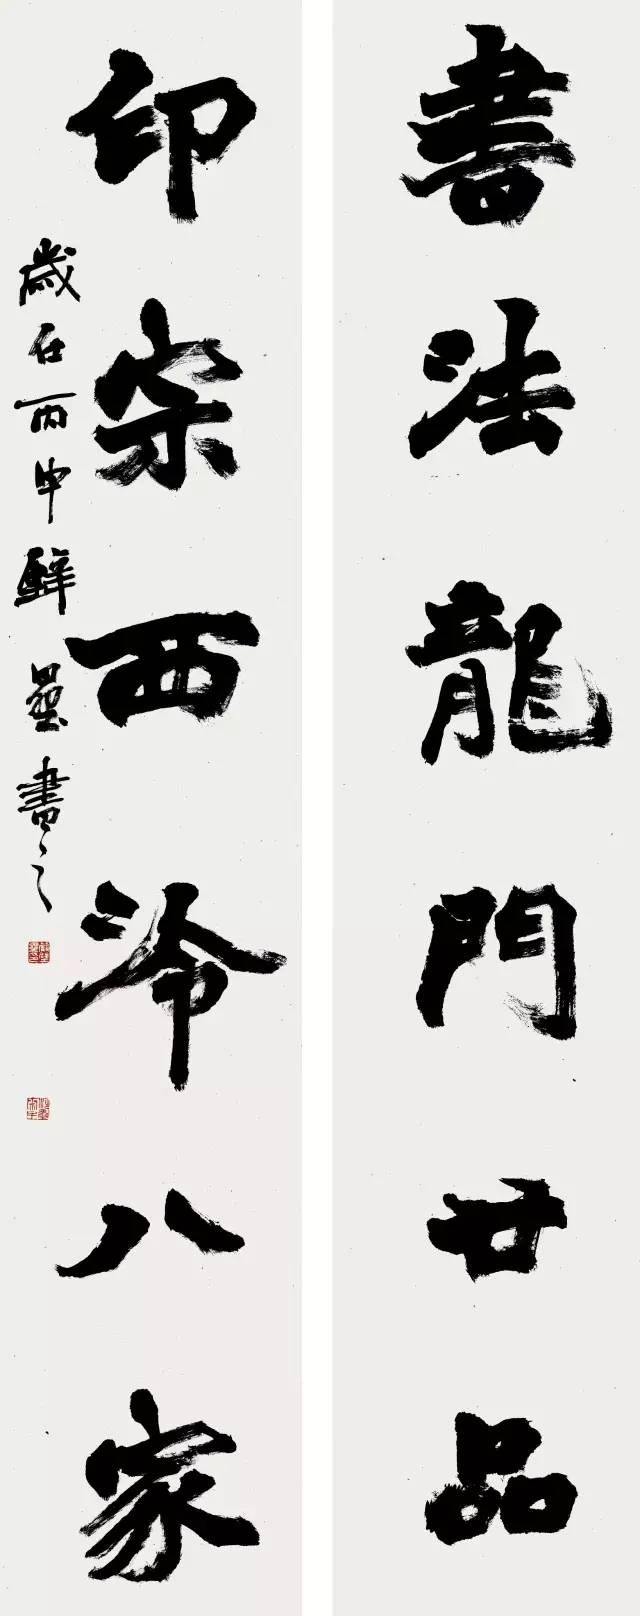 書法龍門廿品
印宗西泠八家
歲在丙申鮮墨書之